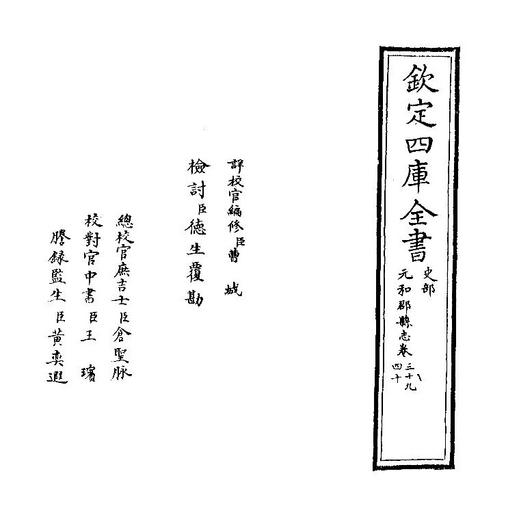 欽定四庫全書
史部
元和郡縣志卷三十九
四十
詳校官編修臣曹城
檢討臣德生覆勘
總校官庶吉士臣倉聖脉
校對官中書臣王璸
謄錄監生臣黃奕遐